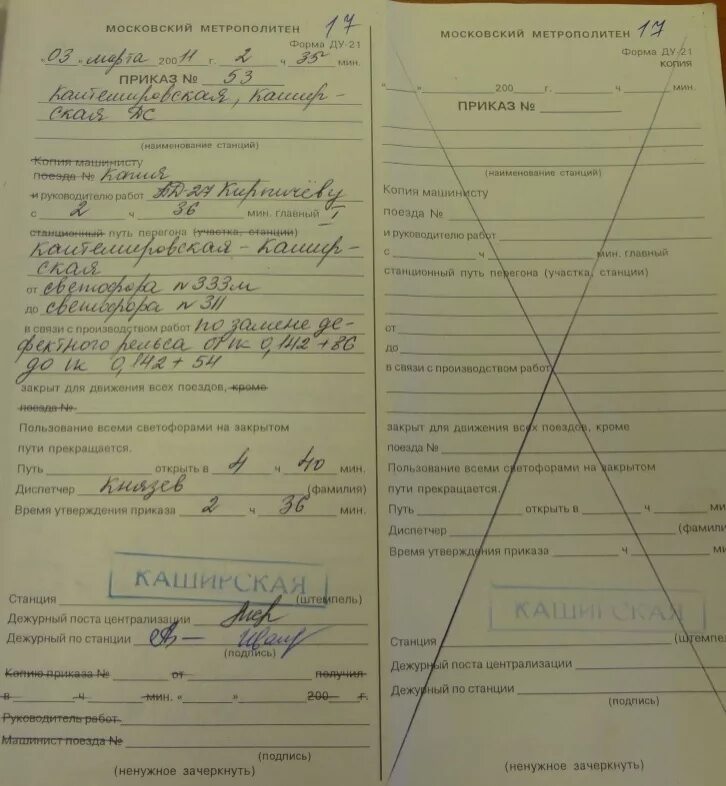 МОСКОВСКИЙ МЕТРОПОЛИТЕН 17
Форма ДУ-21
"03" марта 20011 г. 2 ч 35 мин.
ПРИКАЗ № 53
Кантемировская, Кашир-
ская ДС
(наименование станций)
Копия машинисту
поезда № Копия
и руководителю работ ПД-27 Кирпичёву
с 2 ч 36 мин. главный I
станционный путь перегона (участка, станции)
Кантемировская - Кашир-
ская
от светофора №333м
до светофора №311
в связи с производством работ по замене де-
фектного рельса от пк 0,142+86
до пк 0,142+54
закрыт для движения всех поездов, кроме
поезда №
Пользование всеми светофорами на закрытом
пути прекращается.
Путь открыть в 4 ч 40 мин.
Диспетчер Князев (фамилия)
Время утверждения приказа 2 ч 36 мин.
КАШИРСКАЯ
Станция (штемпель)
Дежурный поста централизации
Дежурный по станции
(подпись)
Копию приказа № от получил
в ч мин. " " 200 г.
Руководитель работ
Машинист поезда №
(подпись)
(ненужное зачеркнуть)
МОСКОВСКИЙ МЕТРОПОЛИТЕН 17
Форма ДУ-21
КОПИЯ
" " 200 г. ч мин.
ПРИКАЗ №
(наименование станций)
Копия машинисту
поезда №
и руководителю работ
с ч мин. главный
станционный путь перегона (участка, станции)
от
до
в связи с производством работ
закрыт для движения всех поездов, кроме
поезда №
Пользование всеми светофорами на закрытом
пути прекращается.
Путь открыть в ч ми
Диспетчер (фамили
Время утверждения приказа ч ми
КАШИРСКАЯ
Станция (штемпе
Дежурный поста централизации
Дежурный по станции
(подпись)
(ненужное зачеркнуть)